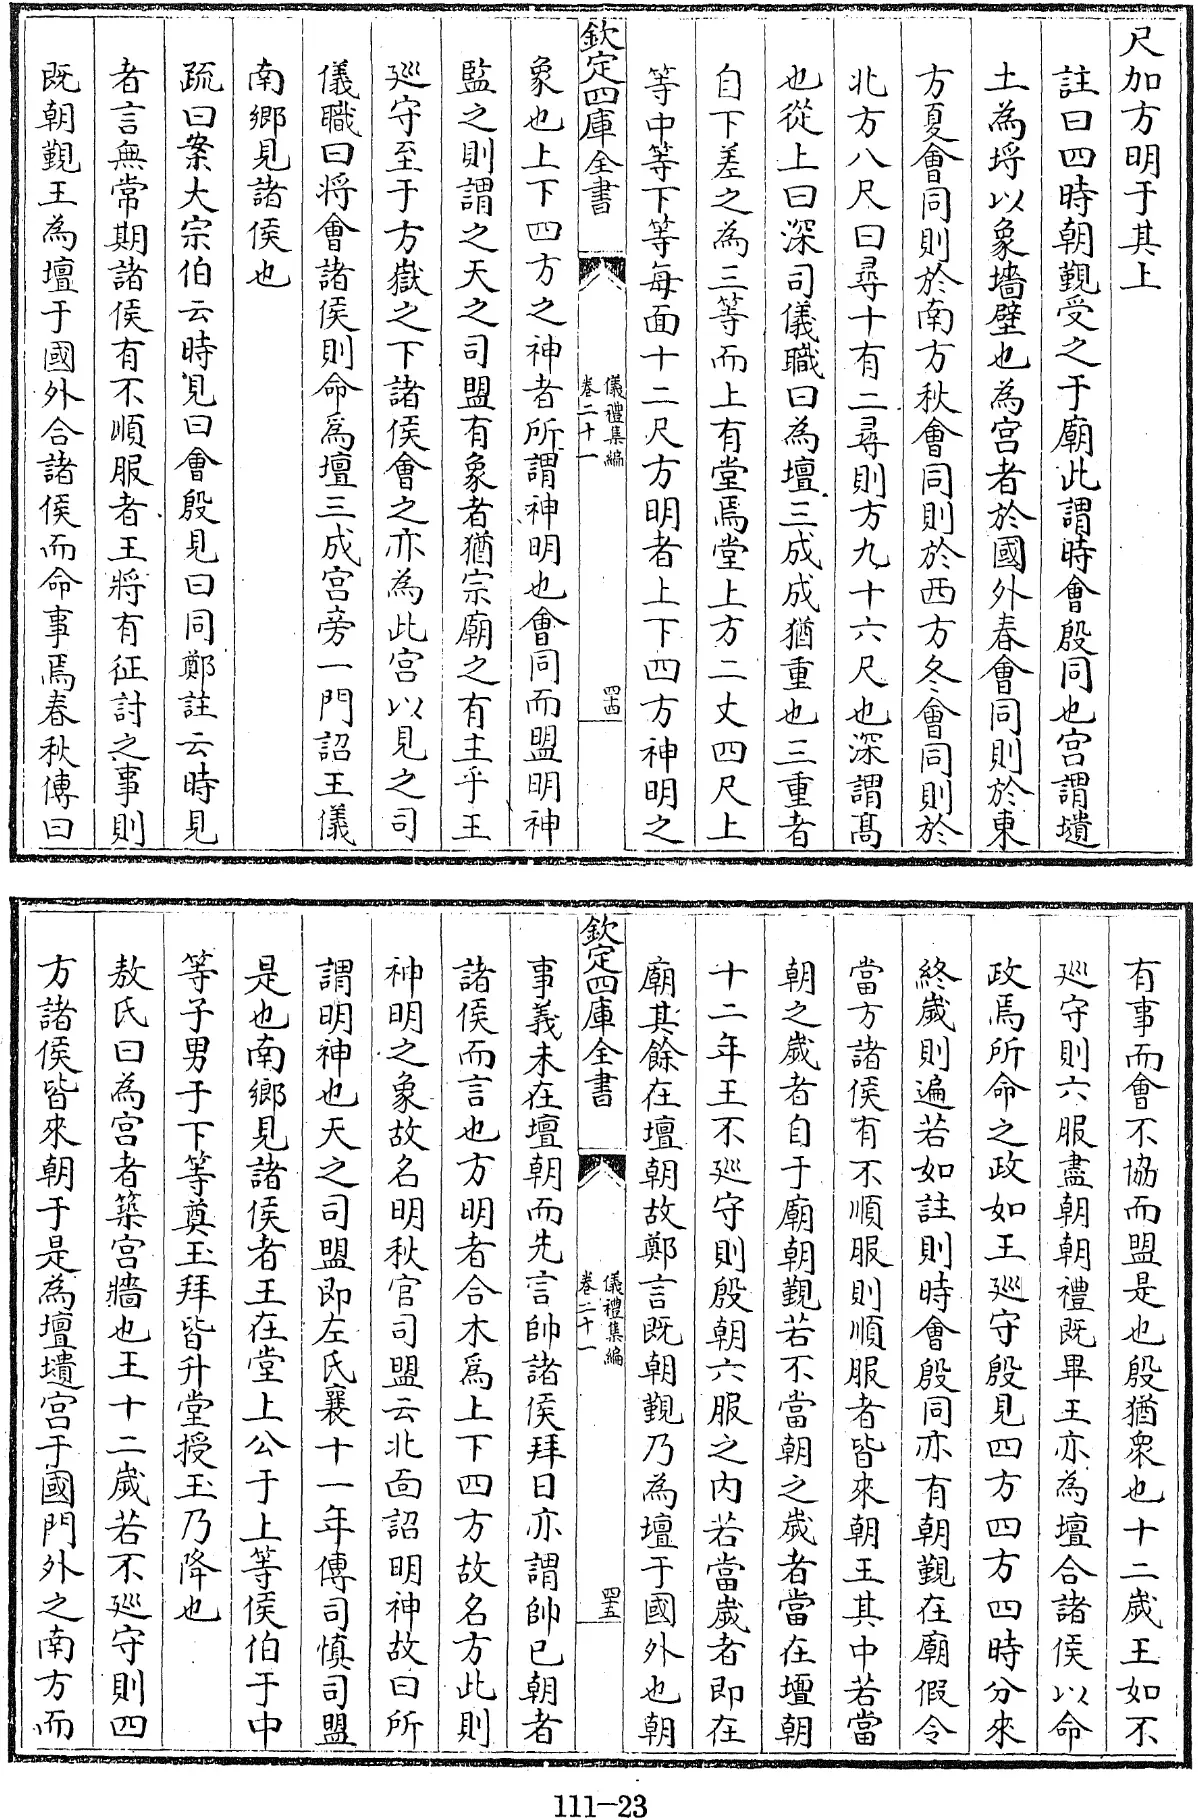 尺加方明于其上
註曰四時朝覲受之于廟此謂時會殷同也宫謂壝
土為埒以象墻壁也為宫者於國外春會同則於東
方夏會同則於南方秋會同則於西方冬會同則於
北方八尺曰尋十有二尋則方九十六尺也深謂髙
也從上曰深司儀職曰為壇三成成猶重也三重者
自下差之為三等而上有堂焉堂上方二丈四尺上
等中等下等每面十二尺方明者上下四方神明之
欽定四庫全書
儀禮集編
卷二十一
四十四
象也上下四方之神者所謂神明也會同而盟明神
監之則謂之天之司盟有象者猶宗廟之有主乎王
巡守至于方嶽之下諸侯會之亦為此宫以見之司
儀職曰將會諸侯則命為壇三成宫旁一門詔王儀
南鄉見諸侯也
疏曰案大宗伯云時見曰會殷見曰同鄭註云時見
者言無常期諸侯有不順服者王將有征討之事則
既朝覲王為壇于國外合諸侯而命事焉春秋傳曰
有事而會不協而盟是也殷猶衆也十二歲王如不
巡守則六服盡朝朝禮既畢王亦為壇合諸侯以命
政焉所命之政如王巡守殷見四方四方四時分來
終歲則遍若如註則時會殷同亦有朝覲在廟假令
當方諸侯有不順服則順服者皆來朝王其中若當
朝之歲者自于廟朝覲若不當朝之歲者當在壇朝
十二年王不巡守則殷朝六服之内若當歲者即在
廟其餘在壇朝故鄭言既朝覲乃為壇于國外也朝
欽定四庫全書
儀禮集編
卷二十一
四十五
事義未在壇朝而先言帥諸侯拜日亦謂帥已朝者
諸侯而言也方明者合木為上下四方故名方此則
神明之象故名明秋官司盟云北面詔明神故曰所
謂明神也天之司盟即左氏襄十一年傳司慎司盟
是也南鄉見諸侯者王在堂上公于上等侯伯于中
等子男于下等奠玉拜皆升堂授玉乃降也
敖氏曰為宫者築宫牆也王十二歲若不巡守則四
方諸侯皆來朝于是為壇壝宫于國門外之南方而
111-23